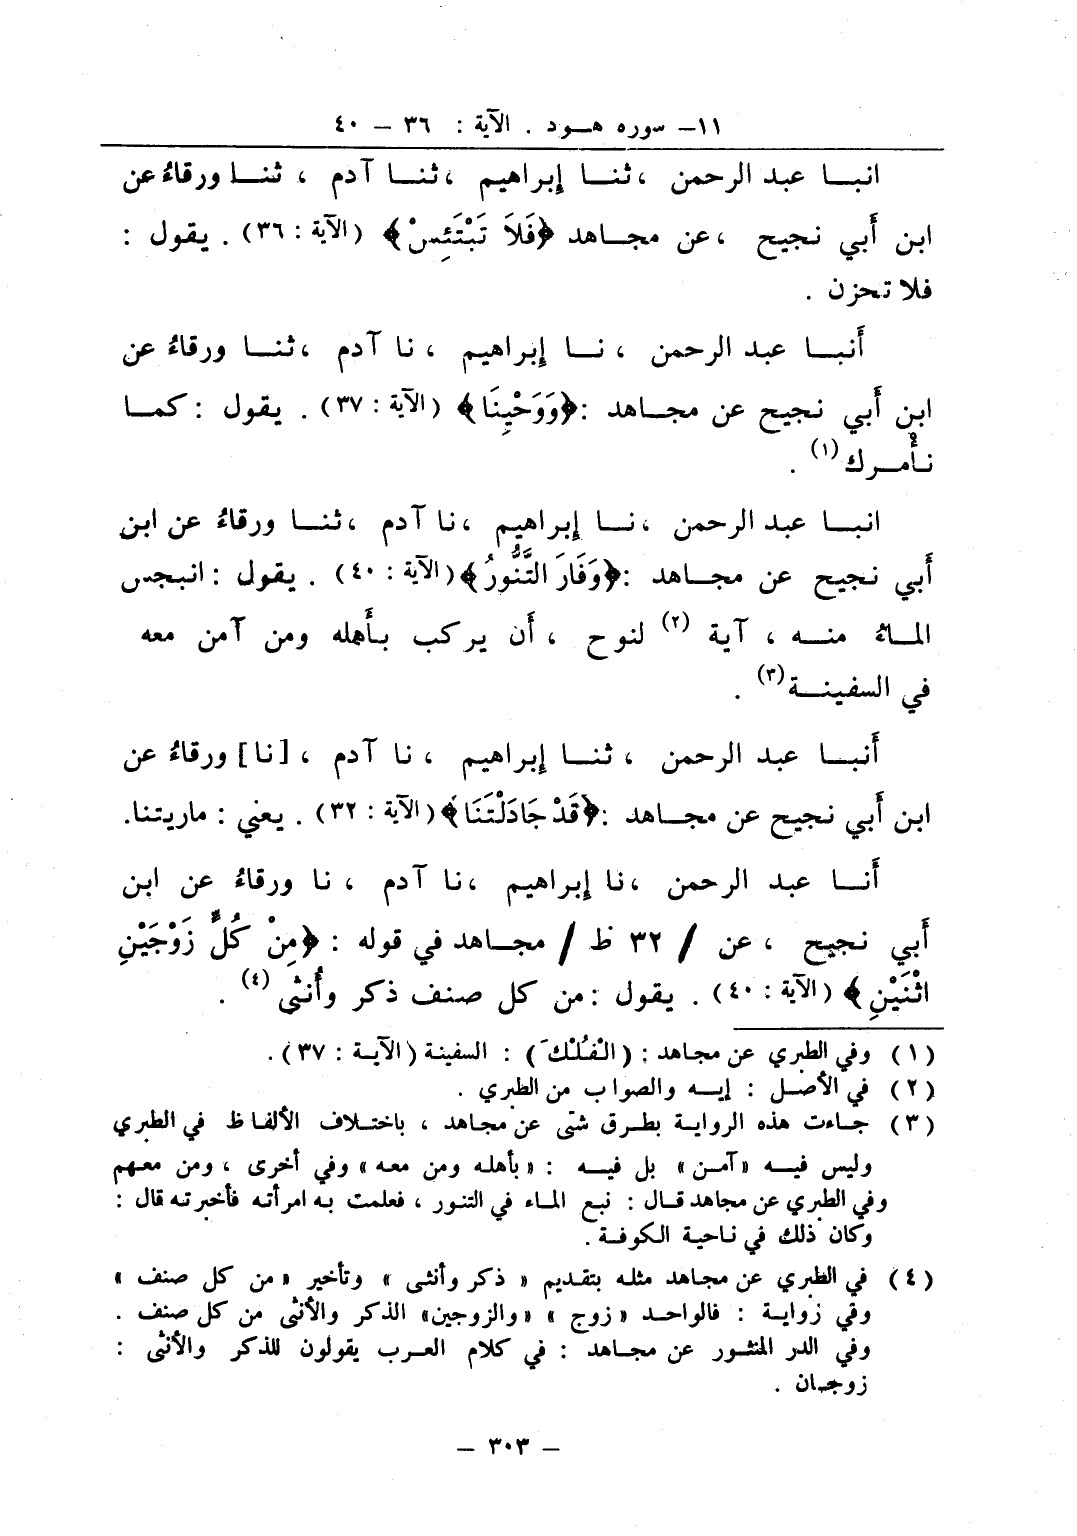 ١١- سوره هـود . الآية : ٣٦ - ٤٠
انبـا عبد الرحمن ، ثنـا إبراهيم ، ثنـا آدم ، ثنـا ورقاءُ عن
ابن أَبي نجيح ، عن مجـاهد ﴿فَلاَ تَبْتَئِسْ﴾ (الآية : ٣٦) . يقول :
فلا تحزن .
أَنبـا عبد الرحمن ، نـا إبراهيم ، نا آدم ، ثنـا ورقاءُ عن
ابن أَبي نجيح عن مجـاهد : ﴿وَوَحْيِنَا﴾ (الآية : ٣٧) . يقول : كمـا
نأْمـرك (١) .
انبـا عبد الرحمن ، نـا إبراهيم ، نا آدم ، ثنـا ورقاءُ عن ابن
أَبي نجيح عن مجـاهد : ﴿وَفَارَ التَّنُّورُ﴾ (الآية : ٤٠) . يقول : انبجس
المـاءُ منـه ، آية (٢) لنوح ، أَن يركب بأَهله ومن آمن معه
في السفينـة (٣) .
أَنبـا عبد الرحمن ، ثنـا إبراهيم ، نا آدم ، [نا] ورقاءُ عن
ابن أَبي نجيح عن مجـاهد : ﴿قَدْ جَادَلْتَنَا﴾ (الآية : ٣٢) . يعني : ماريتنا.
أَنـا عبد الرحمن ، نا إبراهيم ، نا آدم ، نا ورقاءُ عن ابن
أَبي نجيح ، عن / ٣٢ ظ / مجـاهد في قوله : ﴿مِنْ كُلٍّ زَوْجَيْنِ
اثْنَيْنِ﴾ (الآية : ٤٠) . يقول : من كل صنف ذكر وأُنثى (٤) .
(١) وفي الطبري عن مجاهد : (الْفُلْكَ) : السفينة (الآيـة : ٣٧) .
(٢) في الأصـل : إيـه والصواب من الطبري .
(٣) جـاءت هذه الروايـة بطـرق شتى عن مجاهد ، باختـلاف الألفـاظ في الطبري
وليس فيـه «آمـن» بل فيـه : «بأهلـه ومن معـه» وفي أخرى ، ومن معـهم
وفي الطبري عن مجاهد قـال : نبـع المـاء في التنور ، فعلمت بـه امرأتـه فأخبرتـه قال :
وكان ذلك في ناحية الكوفـة .
(٤) في الطبري عن مجـاهد مثلـه بتقـديم « ذكر وأنثى » وتأخير «من كل صنف »
وفي روايـة : فالواحـد «زوج » «والزوجين» الذكر والأنثى من كل صنف .
وفي الدر المنثـور عن مجـاهد : في كلام العـرب يقولون للذكر والأنثى :
زوجـان .
- ٣٠٣ -